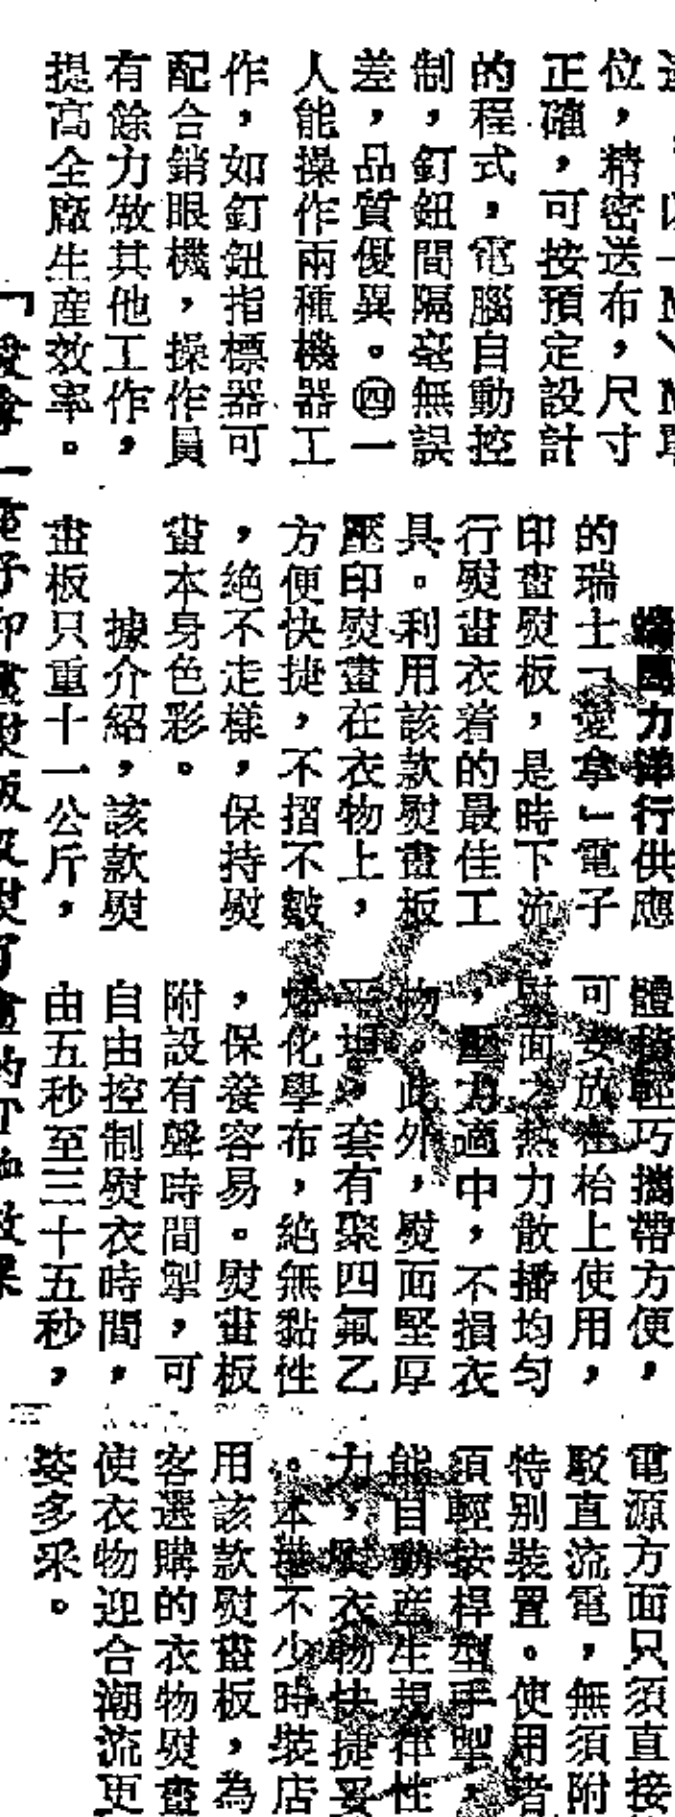 位，精密送布，尺寸
正確，可按預定設計
的程式，電腦自動控
制，釘鈕間隔毫無誤
差，品質優異。㊃一
人能操作兩種機器工
作，如釘鈕指標器可
配合銷眼機，操作員
有餘力做其他工作，
提高全廠生產效率。
力洋行供應
的瑞士「愛拿」電子
印畫熨板，是時下流
行熨畫衣着的最佳工
具。利用該款熨畫板
壓印熨畫在衣物上，
方便快捷，不摺不皺
，絕不走樣，保持熨
畫本身色彩。
據介紹，該款熨
畫板只重十一公斤，
體積輕巧攜帶方便，
可安放在枱上使用，
熨面之熱力散播均勻
，壓力適中，不損衣
物。此外，熨面堅厚
平坦，套有聚四氟乙
烯化學布，絕無黏性
，保養容易。熨畫板
附設有聲時間掣，可
自由控制熨衣時間，
由五秒至三十五秒，
電源方面只須直接
駁直流電，無須附
特別裝置。使用者
須輕按桿型手掣，
能自動產生規律性
力，熨衣物快捷
。本港不少時裝店
用該款熨畫板，為
客選購的衣物熨畫
使衣物迎合潮流更
姿多采。